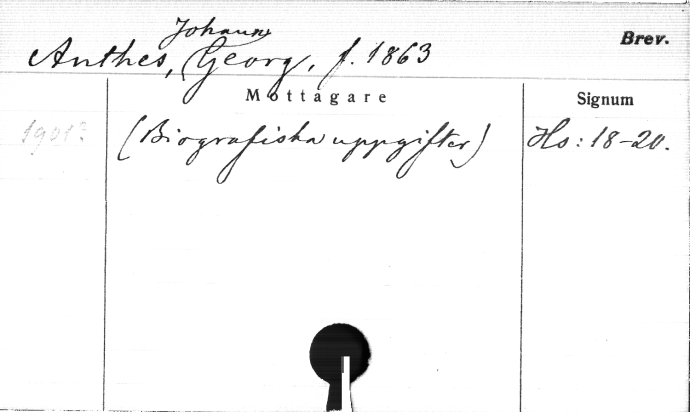 Johann
Anthes, Georg, f. 1863 Brev.
Mottagare Signum
1901? (Biografiska uppgifter) Hs: 18-20.